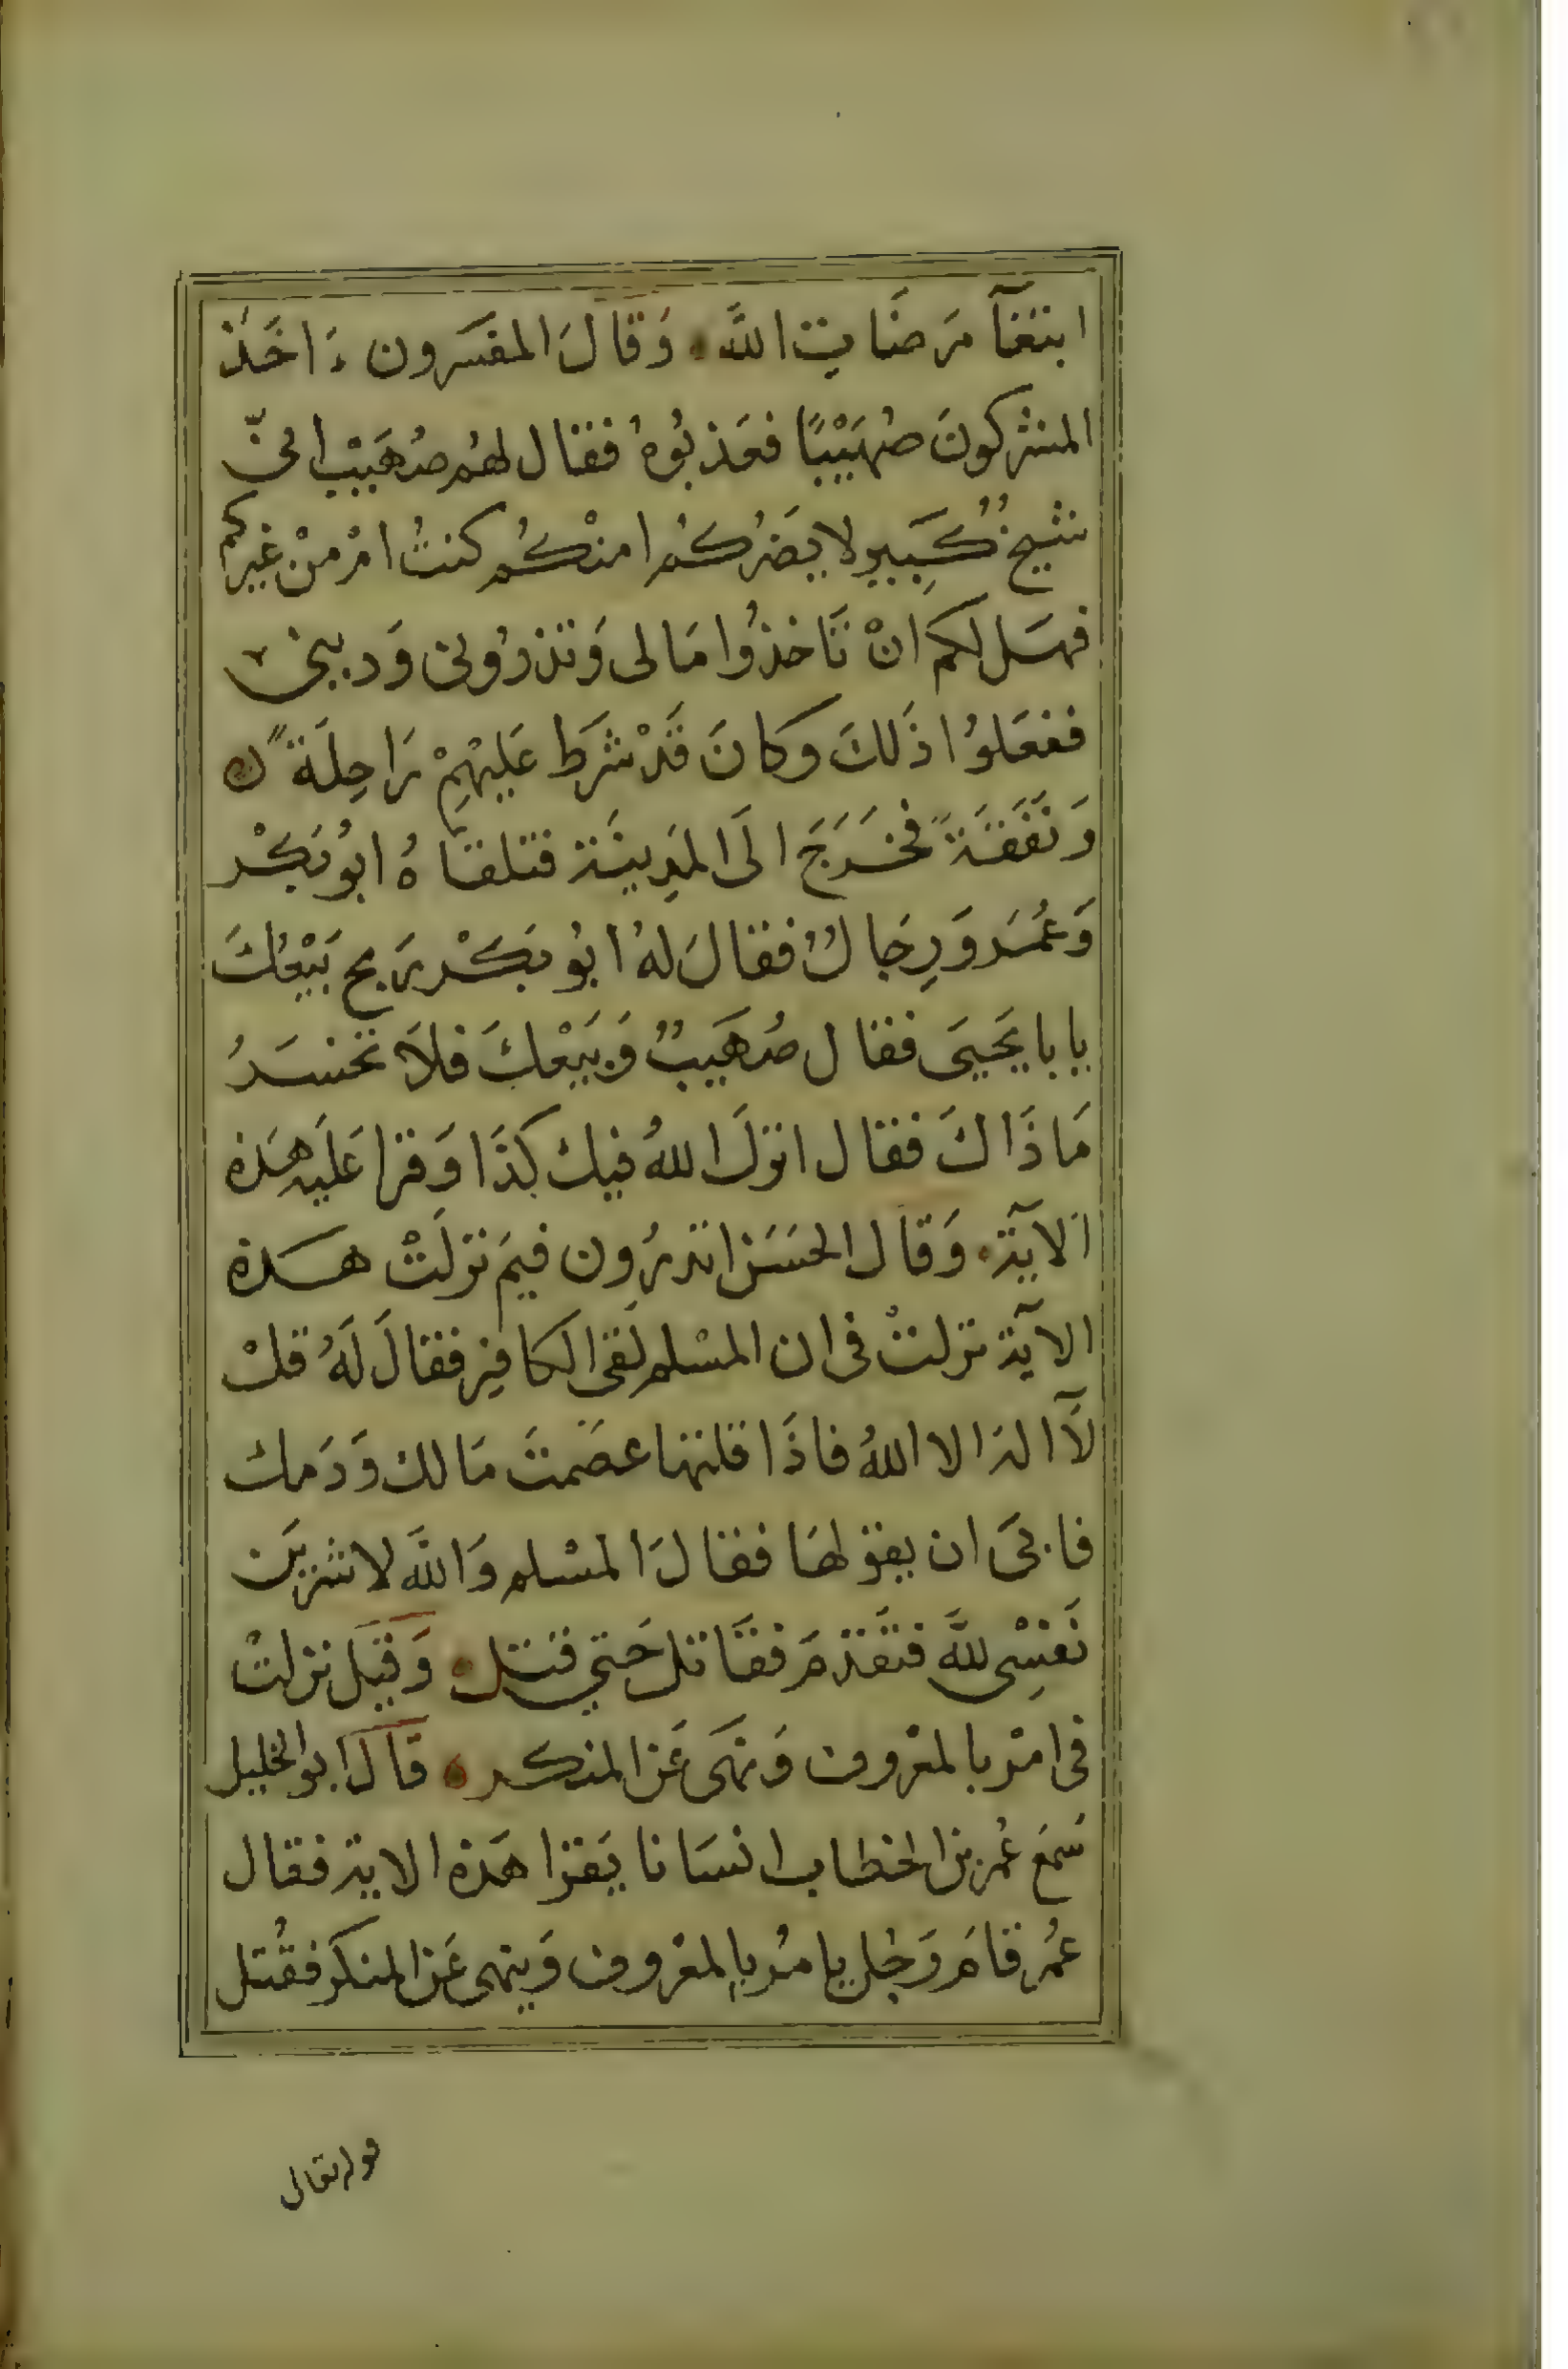 ابتغآ مرضات الله وَقَالَ المفسرون ءَاخَذَ
المشركونَ صُهَيْبًا فعَذبُوهُ فقال لهُم صُهَيْب انىّ
شيخٌ كَبِيرٌ لا يَضرُكُم امنْكُم كنتُ امْ مِنْ غيركم
فهَل لكم انْ تَاخذُوا مَالى وَتذرُونى وَدينى
ففعَلوُا ذَلكَ وكانَ قَدْ شَرَط عَليْهِمْ رَاحِلَةً
وَنَفَقَةً فخَرَجَ الَى المَدِينَة فتلقاهُ ابُو بَكْر
وَعُمَر وَرِجَالٌ فقالَ لهُ ابُو بَكْر رَبح بَيْعُكَ
يابا يَحيَى فقال صُهَيبٌ وَبَيْعُكَ فلاَ تخسَرُ
مَا ذَاكَ فقال انزلَ اللهُ فيك كذَا وَقرا عَليه هَذه
اَلآية وَقال الحسَن اتدرُون فيمَ نزلَتْ هَذه
الآية نزلتْ فى ان المسْلم لَقى الكافِر فقالَ لَهُ قلْ
لآ اله الا اللهُ فاذَا قلتها عصَمتَ مَالك وَدَمك
فابَىَ ان يقولهَا فقالَ المسْلم وَاللَّه لاشرِيَن
نَفسِى للَّه فتَقدّمَ فقَاتل حَتي قتل وَقيلَ نزلتْ
فى امْر بالمعْروف وَنهَى عَن المنكر قَالَ ابو الخليل
سَمعَ عُمر بن الخطاب انسَانا يَقرا هَذه الاية فقال
عُمر قامَ وَرجُل يامُر بالمعْروف وَينهى عَن المنكر فقُتل
قوله تعالى